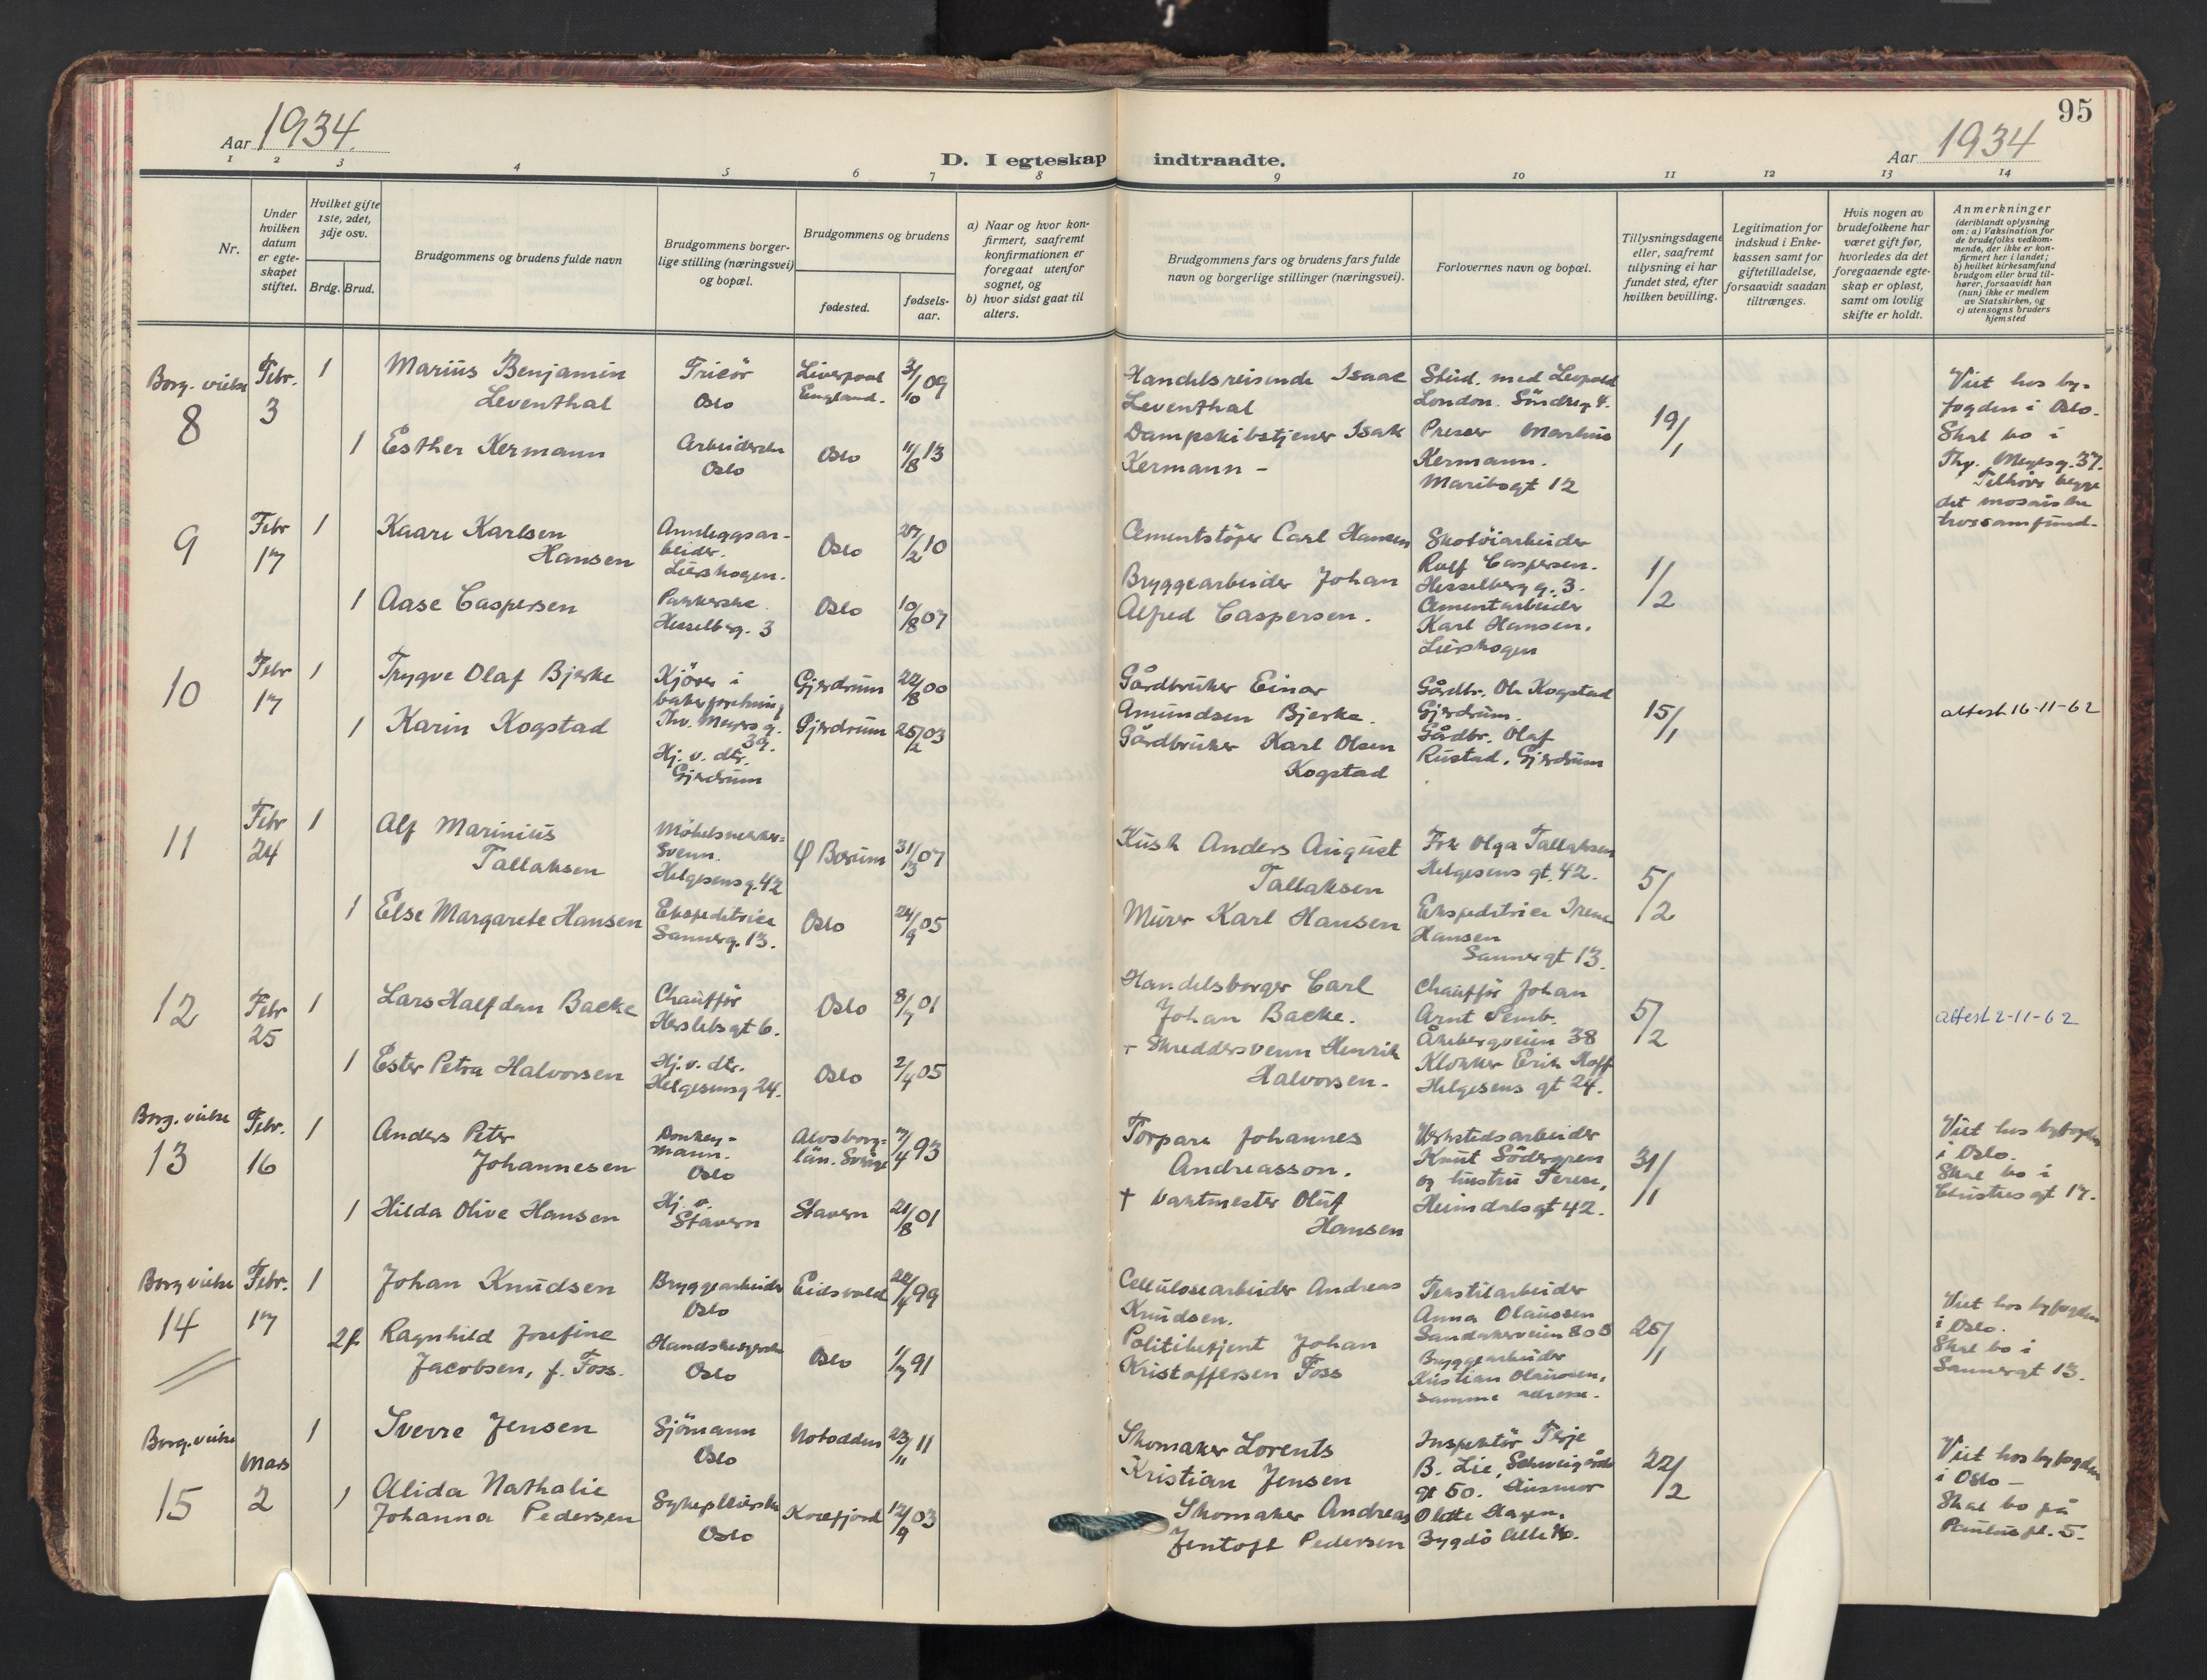 95
Aar 1934.
D. I egteskap indtraadte.
Aar 1934
1 2 3 4 5 6 7 8 9 10 11 12 13 14
Nr.
Under hvilken datum er egteskapet stiftet.
Hvilket gifte 1ste, 2det, 3dje osv.
Brdg. Brud.
Brudgommens og brudens fulde navn
Brudgommens borgerlige stilling (næringsvei) og bopæl.
Brudgommens og brudens
fødested.
fødselsaar.
a) Naar og hvor konfirmert, saafremt konfirmationen er foregaat utenfor sognet, og
b) hvor sidst gaat til alters.
Brudgommens fars og brudens fars fulde navn og borgerlige stillinger (næringsvei).
Forlovernes navn og bopæl.
Tillysningsdagene eller, saafremt tillysning ei har fundet sted, efter hvilken bevilling.
Legitimation for indskud i Enkekassen samt for giftetilladelse, forsaavidt saadan tiltrænges.
Hvis nogen av brudefolkene har været gift før, hvorledes da det foregaaende egteskap er opløst, samt om lovlig skifte er holdt.
Anmerkninger
(deriblandt oplysning om: a) Vaksination for de brudefolks vedkommende, der ikke er konfirmert her i landet; b) hvilket kirkesamfund brudgom eller brud tilhører, forsaavidt han (hun) ikke er medlem av Statskirken, og c) utensogns bruders hjemsted
Borg. vielse
8
Febr. 3
1
Marius Benjamin
Leventhal
Oslo
Liverpool
England.
3/10 09
Handelsreisende Isaac
Leventhal
Stud. med Leopold
London. Söndreg. 4.
19/1
Viet hos by-
fogden i Oslo.
Skal bo i
Thv. Meyersg. 37.
Tilhører begge
det mosaiske
trossamfund.
1
Esther Kermann
Arbeiderske
Oslo
Oslo
11/8 13
Dampskibstjener Isak
Kermann -
Presser Markus
Kermann.
Maribogt 12
9
Febr 17
1
Kaare Karlsen
Hansen
Annleggsar-
beider.
Lierskogen.
Oslo
27/2 10
Cementstöper Carl Hansen
Skotöiarbeider
Rolf Caspersen.
Hesselberg g. 3.
1/2
1
Aase Caspersen
Pakkerske
Hesselbg. 3
Oslo
10/8 07
Bryggearbeider Johan
Alfred Caspersen.
Cementarbeider
Karl Hansen,
Lierskogen
10
Febr 17
1
Trygve Olaf Bjerke
Kjörer i
bakerforretning
Thv. Meyers g. 39.
Gjerdrum
22/8 00
Gårdbruker Einar
Amundsen Bjerke.
Gårdbr. Ole Kogstad
Gjerdrum.
15/1
attest 16-11-62
1
Karin Kogstad
Hj. v. dtr.
Gjerdrum
Gjerdrum
25/2 03
Gårdbruker Karl Olsen
Kogstad
Gårdbr. Olaf
Rustad, Gjerdrum
11
Febr 24
1
Alf Marinius
Tallaksen
Möbelsnekker-
svenn.
Helgesensg. 42
Ø Bærum
31/3 07
Kusk Anders August
Tallaksen
Frk Olga Tallaksen
Helgesens gt. 42.
5/2
1
Else Margarete Hansen
Ekspeditrice
Sannerg. 13.
Oslo
24/9 05
Murer Karl Hansen
Ekspeditrice Irene
Hansen
Sannergt 13.
12
Febr 25
1
Lars Halfdan Backe
Chauffør
Herslebsgt 6.
Oslo
8/7 01
Handelsborger Carl
Johan Backe.
Chauffør Johan
Arnt Semb.
Åkebergveien 38
5/2
attest 2-11-62
1
Ester Petra Halvorsen
Hj. v. dtr.
Helgesensg 24.
Oslo
2/4 05
+ Skreddersvenn Henrik
Halvorsen.
Klokker Erik Hoff
Helgesens gt 24.
Borg. vielse
13
Febr. 16
1
Anders Peter
Johannesen
Donkey-
mann.
Oslo
Alvsborg-
län. Sverige
7/4 93
Torpare Johannes
Andreasson.
Verkstedsarbeider
Knut Södergren
og hustru Terese,
Heimdalsgt 42.
31/1
Viet hos byfogden
i Oslo.
Skal bo i
Christies gt 17.
1
Hilda Olive Hansen
Hj. v.
Stavern
Stavern
21/8 01
† Vaktmester Oluf
Hansen
Borg vielse
14
Febr. 17
1
Johan Knudsen
Bryggearbeider
Oslo
Eidsvold
22/4 99
Cellulosearbeider Andreas
Knudsen.
Tekstilarbeider
Anna Olaussen
Sandakerveien 80 B
25/1
Viet hos byfogden
i Oslo.
Skal bo i
Sannergt 13.
2 f.
Ragnhild Josefine
Jacobsen, f. Foss.
Oslo
Oslo
1/7 91
Politibetjent Johan
Kristoffersen Foss
Bryggearbeider
Kristian Olaussen,
samme adresse.
Borg. vielse
15
Mars 2
1
Sverre Jensen
Sjömann
Oslo
Notodden
23/11 11
Skomaker Lorents
Kristian Jensen
Inspektör Terje
B. Lie, Schweigårds
gt 50.
22/2
Viet hos byfogden
i Oslo -
Skal bo på
Pauluspl. 5.
1
Alida Nathalie
Johanna Pedersen
Sykepleierske
Oslo
Korsfjord
12/9 03
Skomaker Andreas
Jentoft Pedersen
Hagen,
Bygdö Alle